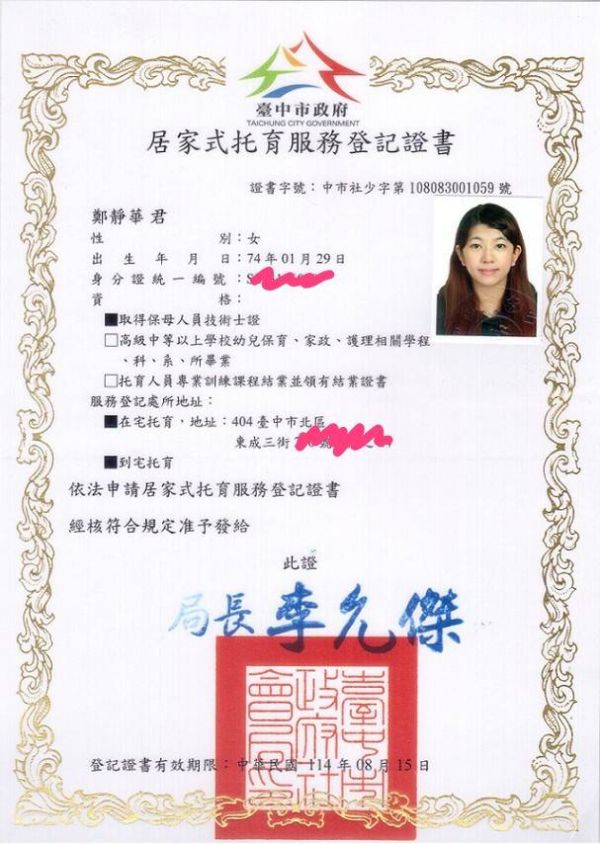 臺中市政府
TAICHUNG CITY GOVERNMENT
居家式托育服務登記證書
證書字號：中市社少字第 108083001059 號
鄭靜華 君
性 別：女
出 生 年 月 日：74 年 01 月 29 日
身 分 證 統 一 編 號：
資 格：
■取得保母人員技術士證
□高級中等以上學校幼兒保育、家政、護理相關學程
、科、系、所畢業
□托育人員專業訓練課程結業並領有結業證書
服務登記處所地址：
■在宅托育，地址：404 臺中市北區
東成三街
■到宅托育
依法申請居家式托育服務登記證書
經核符合規定准予發給
此證
局長 李允傑
臺中市政府社會局印
登記證書有效期限：中華民國 114 年 08 月 15 日